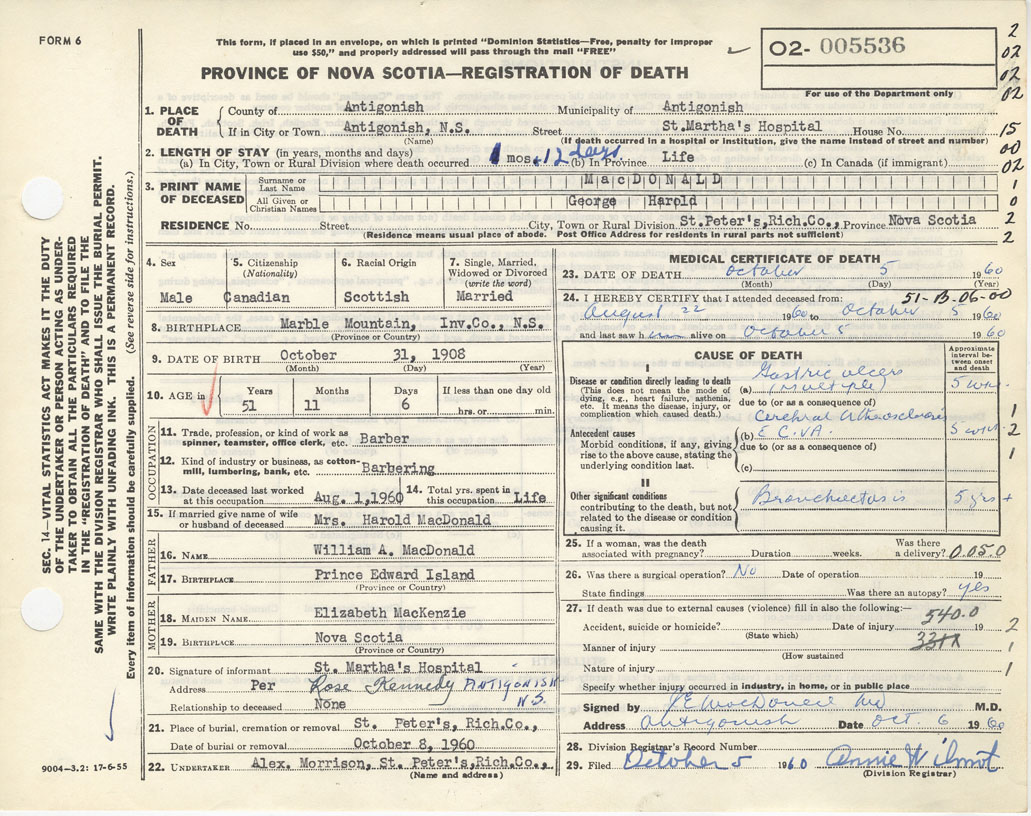 FORM 6
This form, if placed in an envelope, on which is printed "Dominion Statistics—Free, penalty for improper
use $50," and properly addressed will pass through the mail "FREE"
O2- 005536
For use of the Department only
PROVINCE OF NOVA SCOTIA—REGISTRATION OF DEATH
2
02
02
02
15
00
02
1
0
2
2
1. PLACE OF DEATH
County of Antigonish Municipality of Antigonish
If in City or Town Antigonish, N.S. Street St.Martha's Hospital House No.
(Name) (If death occurred in a hospital or institution, give the name instead of street and number)
2. LENGTH OF STAY (in years, months and days)
(a) In City, Town or Rural Division where death occurred 1 mos. 12 days (b) In Province Life (c) In Canada (if immigrant)
3. PRINT NAME OF DECEASED
Surname or Last Name MacDONALD
All Given or Christian Names George Harold
RESIDENCE No. Street City, Town or Rural Division St.Peter's,Rich.Co., Province Nova Scotia
(Residence means usual place of abode. Post Office Address for residents in rural parts not sufficient)
SEC. 14—VITAL STATISTICS ACT MAKES IT THE DUTY
OF THE UNDERTAKER OR PERSON ACTING AS UNDER-
TAKER TO OBTAIN ALL THE PARTICULARS REQUIRED
IN THE "REGISTRATION OF DEATH" AND TO FILE THE
SAME WITH THE DIVISION REGISTRAR WHO SHALL ISSUE THE BURIAL PERMIT.
WRITE PLAINLY WITH UNFADING INK. THIS IS A PERMANENT RECORD.
Every item of information should be carefully supplied. (See reverse side for instructions.)
4. Sex
Male
5. Citizenship
(Nationality)
Canadian
6. Racial Origin
Scottish
7. Single, Married,
Widowed or Divorced
(write the word)
Married
8. BIRTHPLACE Marble Mountain, Inv.Co., N.S.
(Province or Country)
9. DATE OF BIRTH October 31, 1908
(Month) (Day) (Year)
10. AGE in
Years Months Days If less than one day old
51 11 6 hrs. or min.
OCCUPATION
11. Trade, profession, or kind of work as
spinner, teamster, office clerk, etc. Barber
12. Kind of industry or business, as cotton-
mill, lumbering, bank, etc. Barbering
13. Date deceased last worked
at this occupation Aug. 1,1960
14. Total yrs. spent in
this occupation Life
15. If married give name of wife
or husband of deceased Mrs. Harold MacDonald
FATHER
16. NAME William A. MacDonald
17. BIRTHPLACE Prince Edward Island
(Province or Country)
MOTHER
18. MAIDEN NAME Elizabeth MacKenzie
19. BIRTHPLACE Nova Scotia
(Province or Country)
20. Signature of informant St. Martha's Hospital
Address Per Rose Kennedy ANTIGONISH
N.S.
Relationship to deceased None
21. Place of burial, cremation or removal St. Peter's, Rich.Co.,
Date of burial or removal October 8, 1960
22. UNDERTAKER Alex. Morrison, St. Peter's,Rich.Co.,
(Name and address)
9004—3.2: 17-6-55
MEDICAL CERTIFICATE OF DEATH
23. DATE OF DEATH October 5 1960
(Month) (Day) (Year)
24. I HEREBY CERTIFY that I attended deceased from: 51-B-06-00
August 22 1960 to October 5 1960
and last saw him alive on October 5 1960
CAUSE OF DEATH
Approximate interval between onset and death
I
Disease or condition directly leading to death
(This does not mean the mode of
dying, e.g., heart failure, asthenia,
etc. It means the disease, injury, or
complication which caused death.)
(a) Gastric ulcers
(multiple) 5 wks.
due to (or as a consequence of)
Antecedent causes
Morbid conditions, if any, giving
rise to the above cause, stating the
underlying condition last.
Cerebral Atherosclerosis
(b) E C.V.A. 5 wks.
due to (or as a consequence of)
(c)
1
2
1
II
Other significant conditions
contributing to the death, but not
related to the disease or condition
causing it.
Bronchiectasis 5 yrs +
25. If a woman, was the death
associated with pregnancy? Duration weeks. Was there
a delivery? 0.05.0
26. Was there a surgical operation? No Date of operation 19
State findings Was there an autopsy? yes
27. If death was due to external causes (violence) fill in also the following:—
540.0
Accident, suicide or homicide? Date of injury 19 2
(State which)
Manner of injury 1
(How sustained
Nature of injury 1
Specify whether injury occurred in industry, in home, or in public place
Signed by M.D.
Address Antigonish Date Oct. 6 1960
28. Division Registrar's Record Number
29. Filed October 5 1960 Annie Wilmot
(Division Registrar)